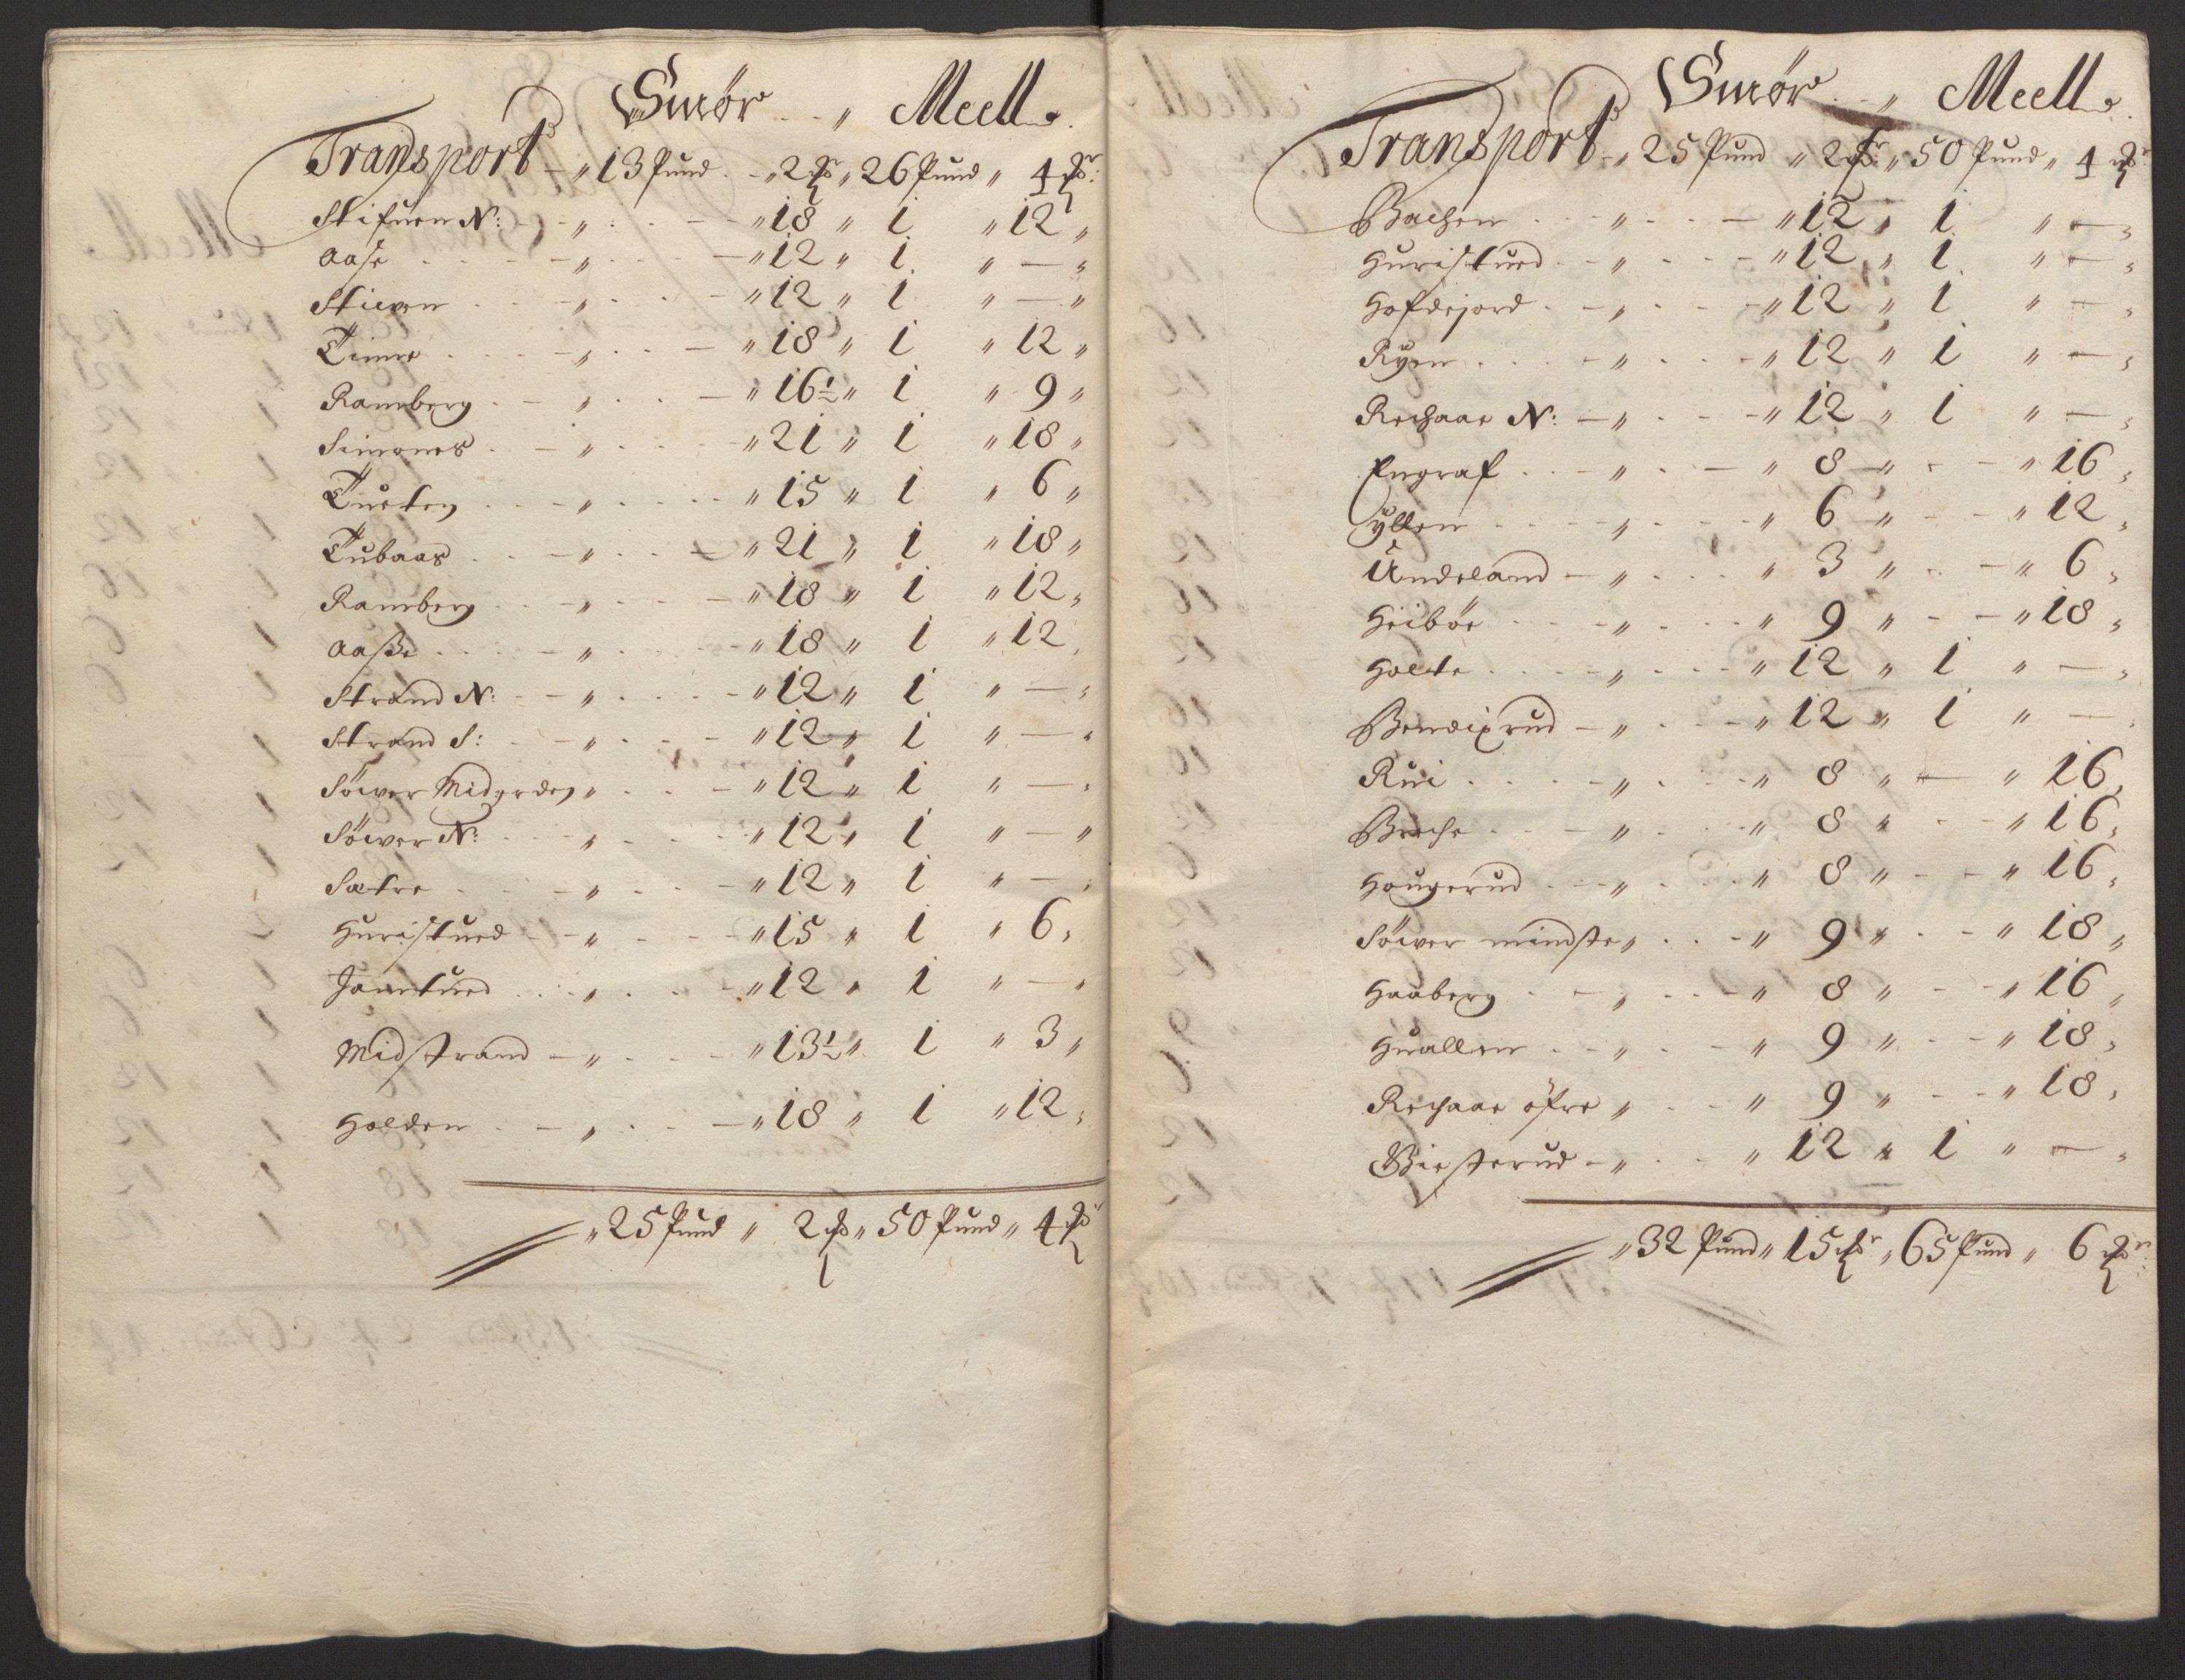 Smör „ Meell.
Transport „ 13 Pund „ 2 ℔r „ 26 Pund „ 4 ℔r:
Stifuen N: „ 18 „ 1 „ 12 „
Aase „ 12 „ 1 „ — „
Stiewen „ 12 „ 1 „ — „
Timme „ 18 „ 1 „ 12 „
Ramberg „ 16½ „ 1 „ 9 „
Simones „ 21 „ 1 „ 18 „
Tufteg „ 15 „ 1 „ 6 „
Tubaas „ 21 „ 1 „ 18 „
Ramberg „ 18 „ 1 „ 12 „
Aaße „ 18 „ 1 „ 12 „
Strand N: „ 12 „ 1 „ — „
Strand S: „ 12 „ 1 „ — „
Söwer Midgrden „ 12 „ 1 „ — „
Söwer N: „ 12 „ 1 „ — „
Sætre „ 12 „ 1 „ — „
Huristued „ 15 „ 1 „ 6 „
Jamtued „ 12 „ 1 „ — „
Midstrand „ 13½ „ 1 „ 3 „
Holden „ 18 „ 1 „ 12 „
„ 25 Pund „ 2 ℔ „ 50 Pund „ 4 ℔r
Smör „ Meell.
Transport „ 25 Pund „ 2 ℔r „ 50 Pund „ 4 ℔r
Bachen „ 12 „ 1 „ — „
Huristued „ 12 „ 1 „ — „
Hofdejord „ 12 „ 1 „ — „
Ryen „ 12 „ 1 „ — „
Rechaae N: „ 12 „ 1 „ — „
Engraf „ 8 „ — „ 16 „
Cyllen „ 6 „ — „ 12 „
Undeland „ 3 „ — „ 6 „
Heiböe „ 9 „ — „ 18 „
Holte „ 12 „ 1 „ — „
Bendixrud „ 12 „ 1 „ — „
Rui „ 8 „ — „ 16 „
Breche „ 8 „ — „ 16 „
Hougerud „ 8 „ — „ 16 „
Söwer mindste „ 9 „ — „ 18 „
Haaberg „ 8 „ — „ 16 „
Huallen „ 9 „ — „ 18 „
Rechaae öfre „ 9 „ — „ 18 „
Biesterud „ 12 „ 1 „ — „
„ 32 Pund „ 15 ℔r „ 65 Pund „ 6 ℔r: